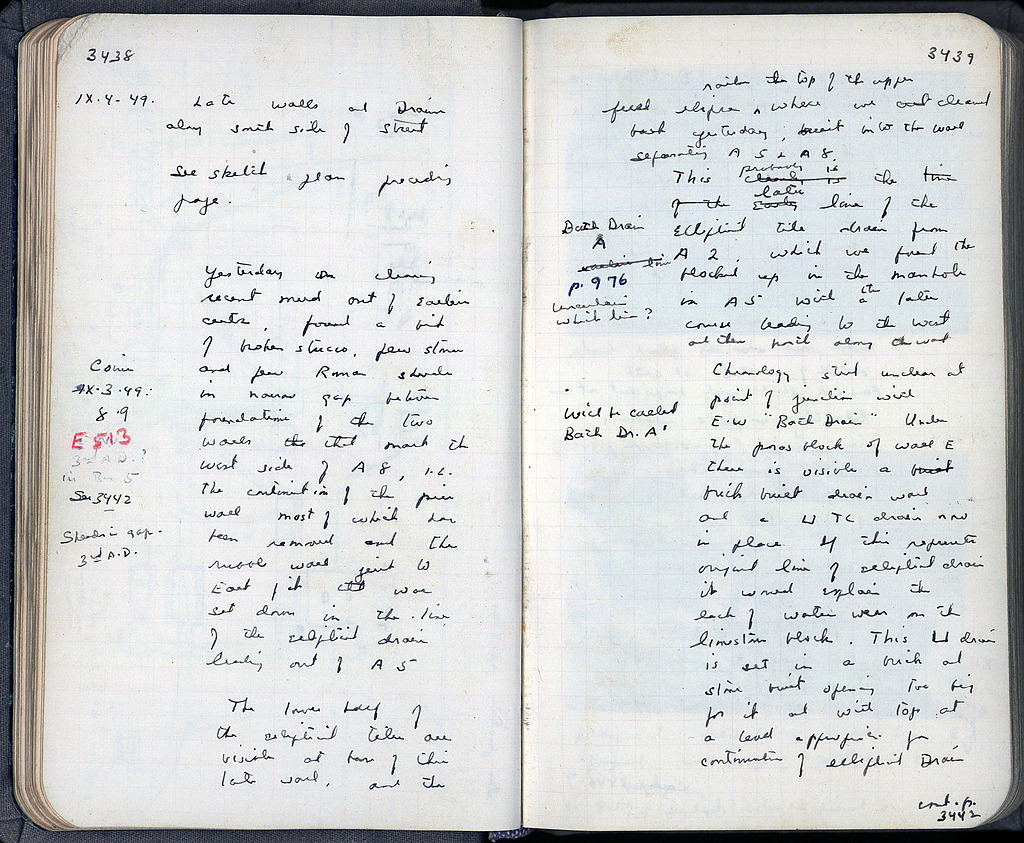 3438
IX-4-49. Late walls and Drain
along south side of street
See sketch plan preceding
page.
Yesterday in cleaning
recent mud out of Earlier
cuts, found a bit
of broken stucco, few stones
and few Roman sherds
in narrow gap between
foundations of the two
walls that mark the
west side of A 8, i.e.
the continuation of the pier
wall most of which has
been removed and the
rubble wall just to
East of it was
set down in the line
of the elliptical drain
leading out of A 5
The lower half of
the elliptical tiles are
visible at base of this
late wall, and the
Coin
IX-3-49:
8.9
E 513
3rd A.D.?
in Box 5
See 3442
Sherds in gap -
3rd A.D.
3439
rather the top of the upper
fired ellipse, where we cleaned
back yesterday, built into the wall
separating A 5 & A 8.
This probably is the
late line of the
elliptical tile drain from
A 2, which we found the
blocked up in the manhole
in A5 with the later
course leading to the west
and then north along the wall
Chronology still unclear at
point of junction with
E-W "Bath Drain" Under
the poros block of wall E
there is visible a
brick built drain wall
and a U TC drain now
in place If this represents
original line of elliptical drain
it would explain the
lack of water wear on the
limestone block. This U drain
is set in a brick and
stone built opening too big
for it and with top at
a level appropriate for
continuation of elliptical Drain
Bath Drain
A
earlier line
p. 976
uncertain
which line?
Will be called
Bath Dr. A'
cont. p.
3442